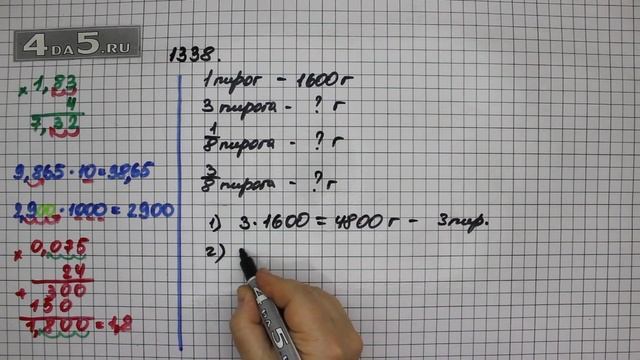 4DA5.RU
1338.
× 1,83
4
7,32
9,865 · 10 = 98,65
2,900 · 1000 = 2900
× 0,075
24
+ 300
150
1,800 = 1,8
1 пирог - 1600 г
3 пирога - ? г
1/8 пирога - ? г
3/8 пирога - ? г
1) 3 · 1600 = 4800 г - 3 пир.
2)
4DA5